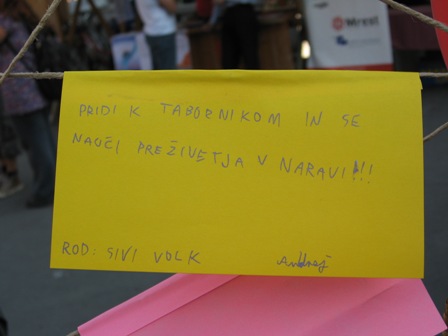 Mrest
PRIDI K TABORNIKOM IN SE
NAUČI PREŽIVETJA V NARAVI!!!
ROD: SIVI VOLK Andrej